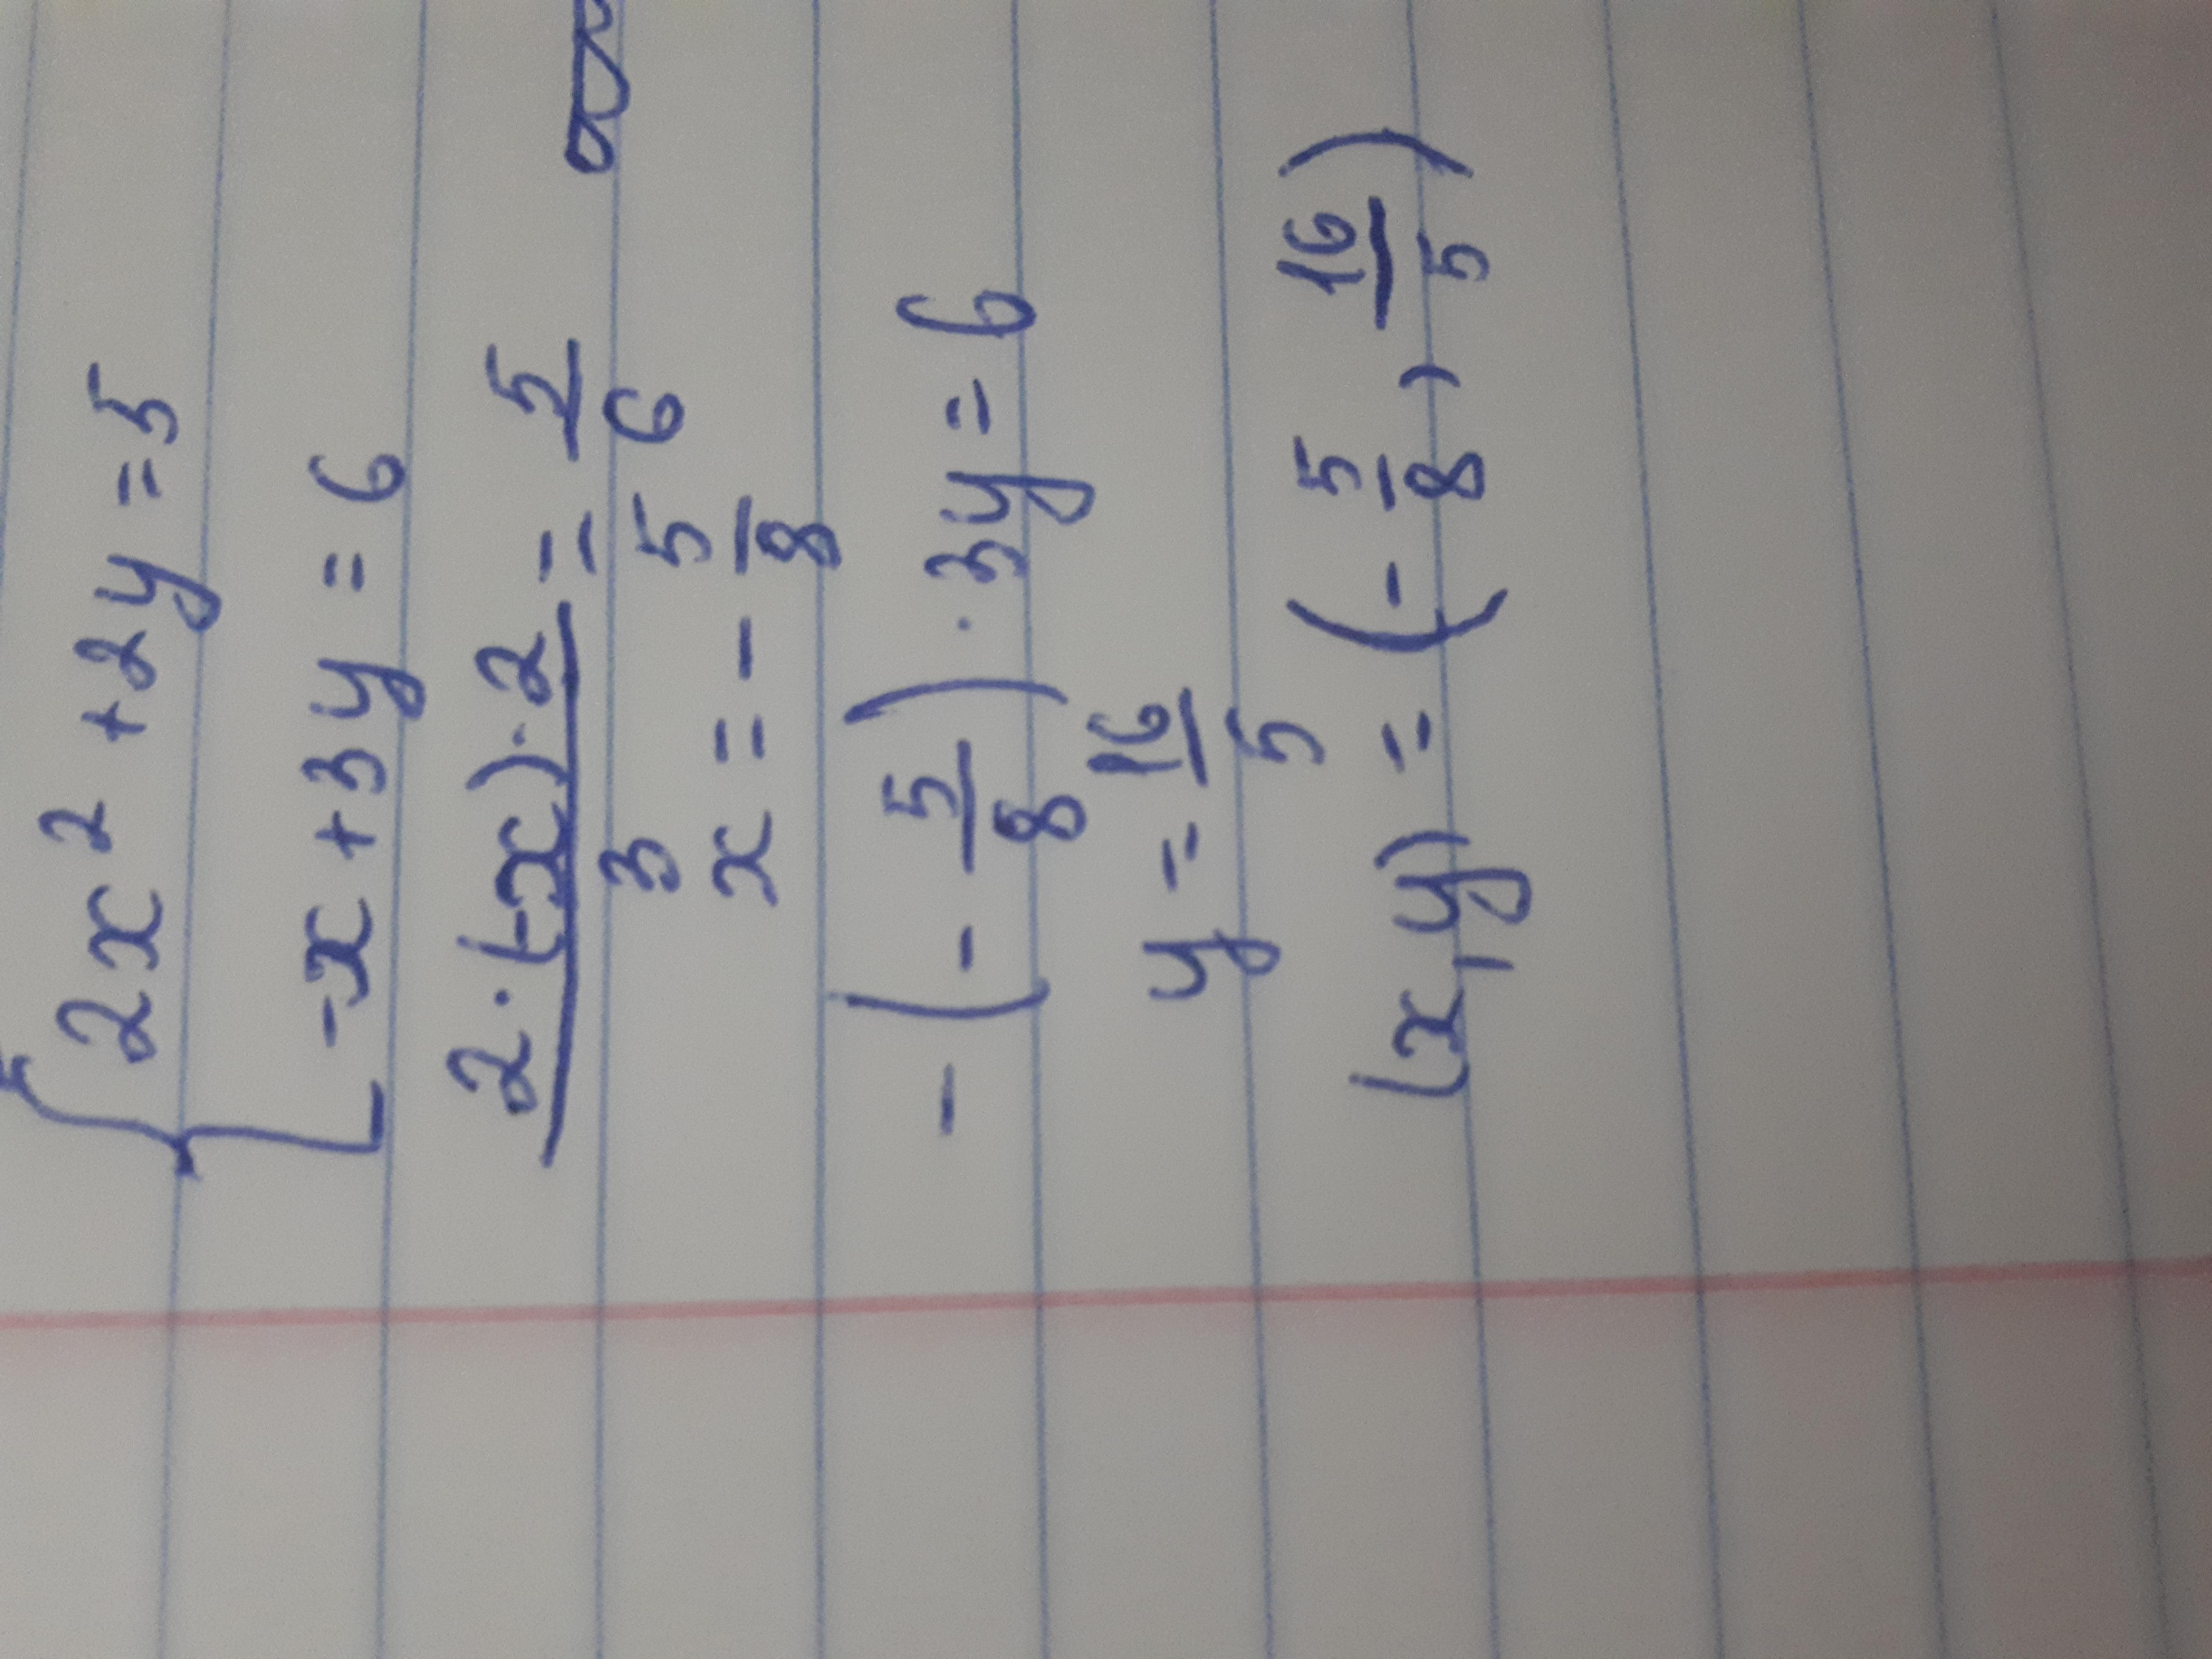 { 2x² + 2y = 5
-x + 3y = 6
2·(-x)·2/3 = 5/6
x = - 5/8
-(- 5/8) · 3y = 6
y = 16/5
(x, y) = (- 5/8, 16/5)